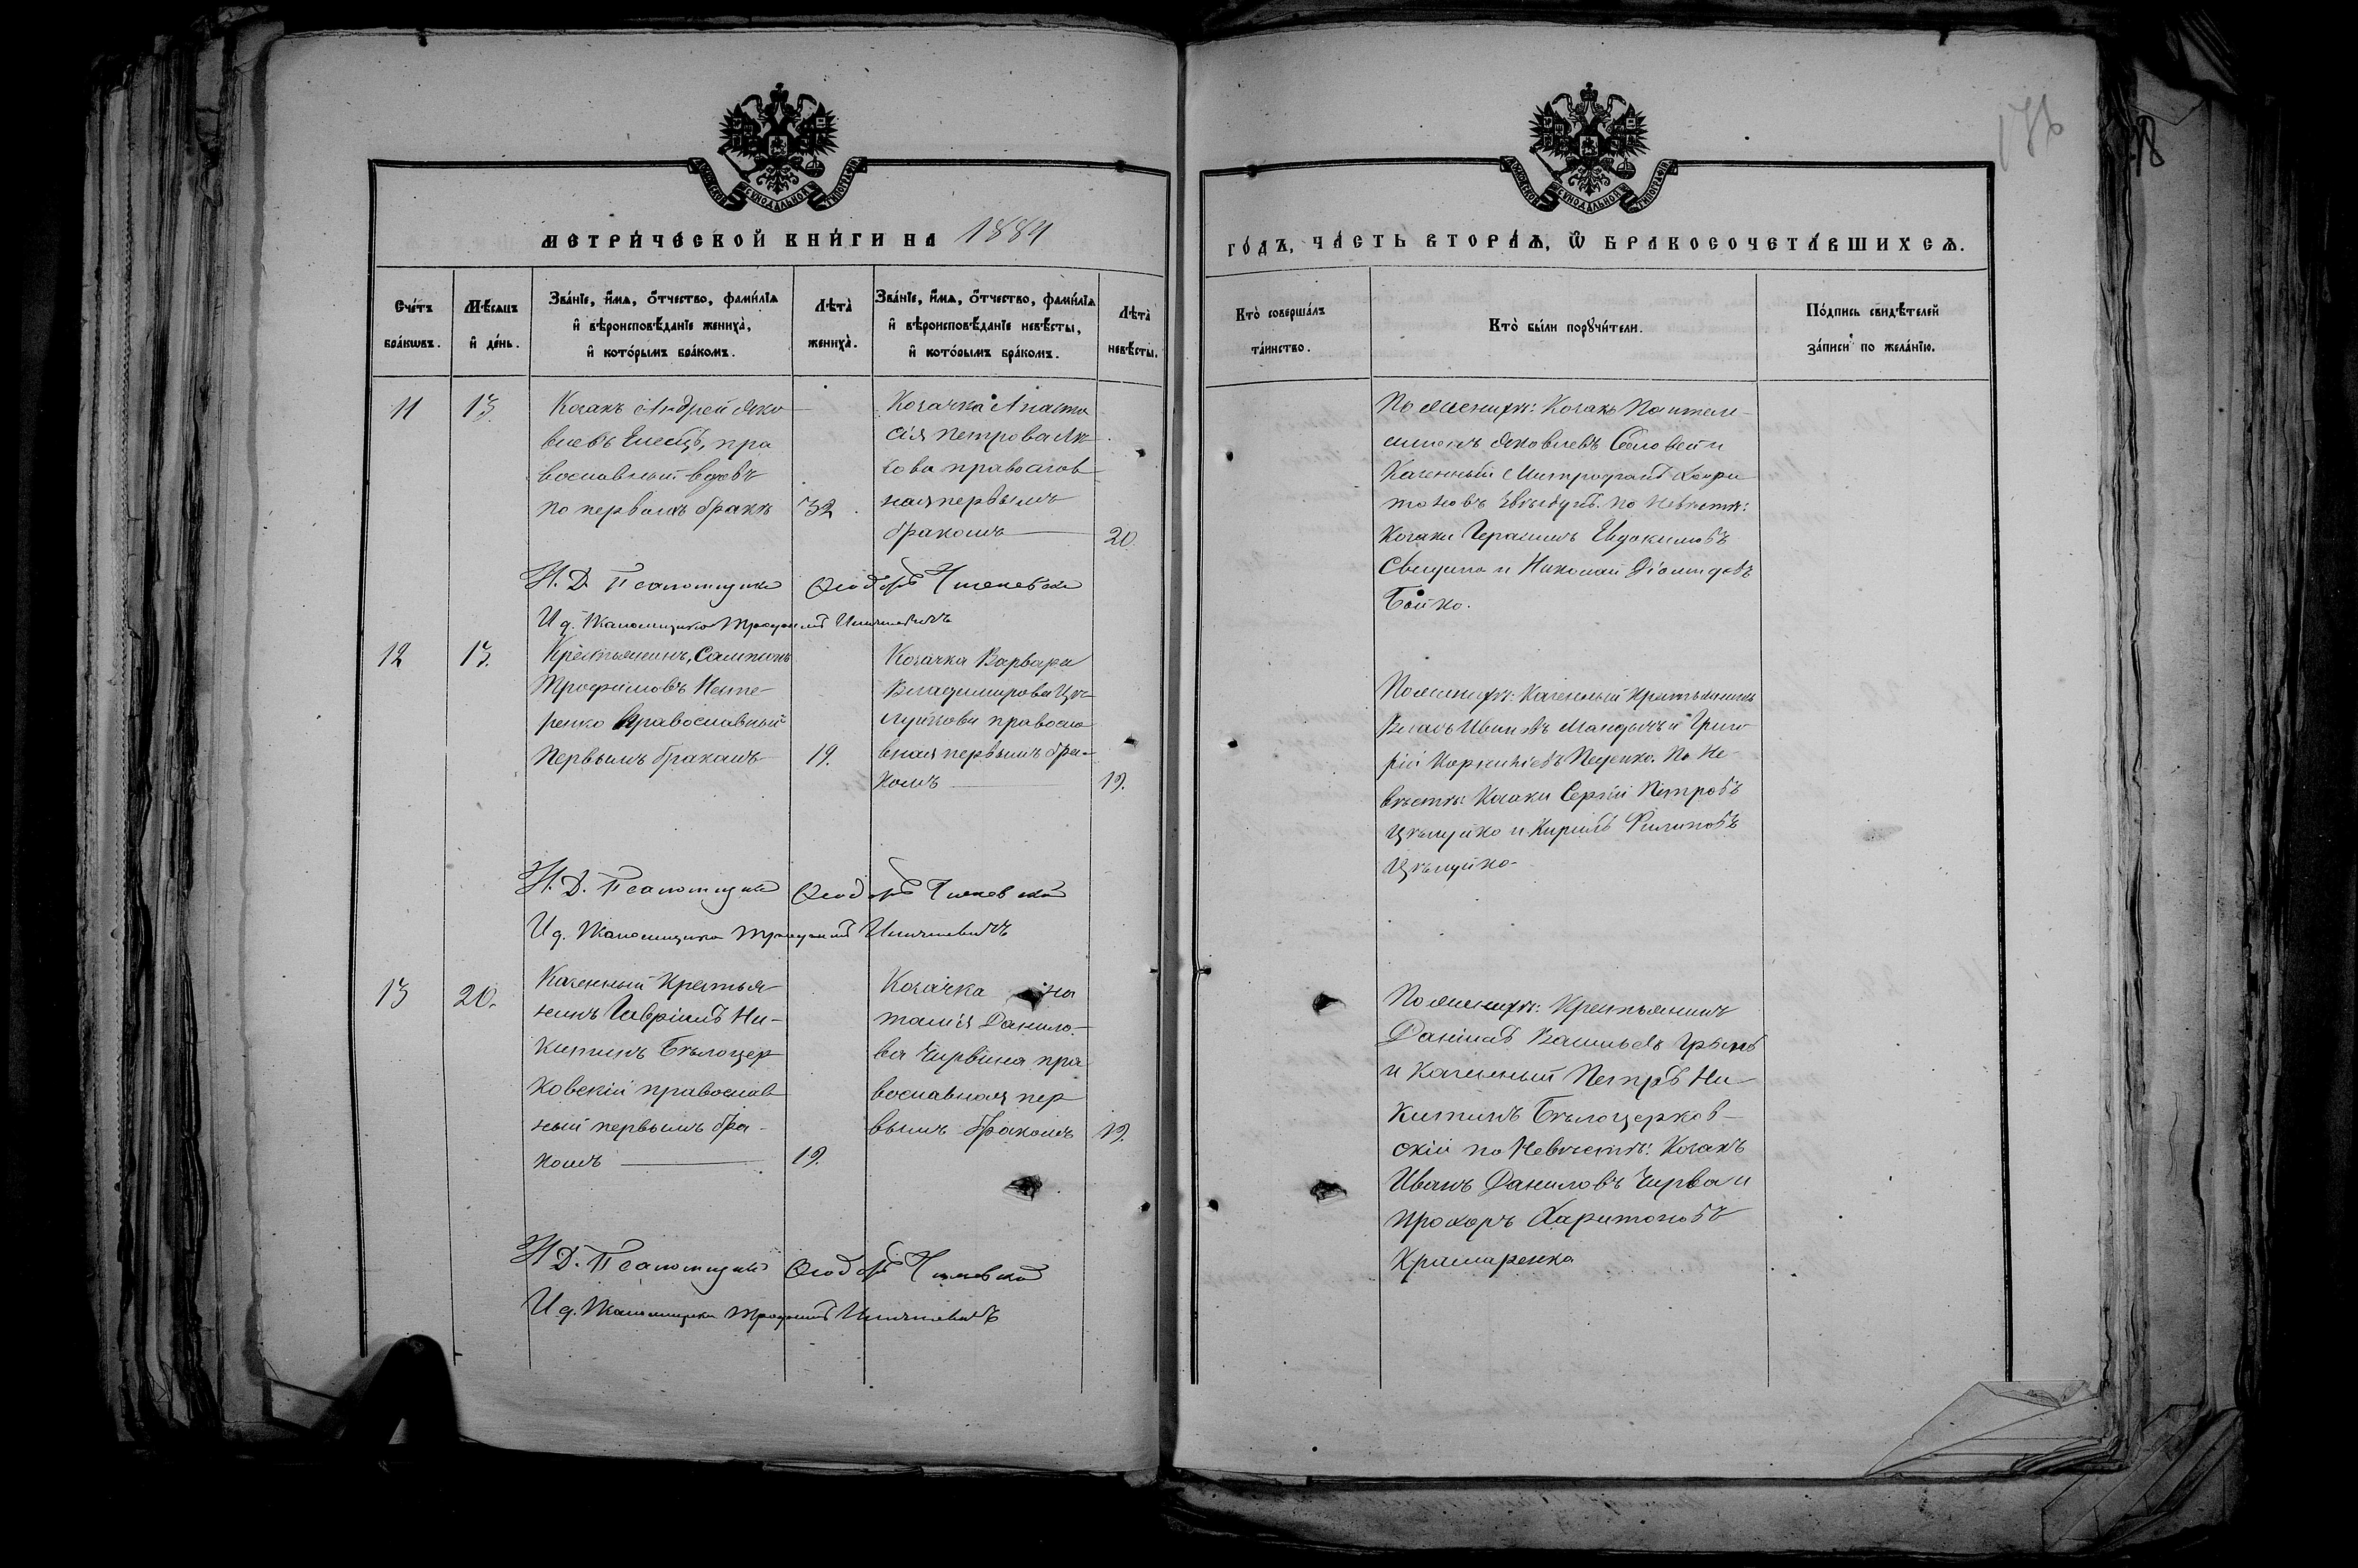 176
МЕТРИЧЕСКОЙ КНИГИ НА 1884
ГОДЪ, ЧАСТЬ ВТОРАЯ, Ѿ БРАКОСОЧЕТАВШИХСЯ.
Счетъ браковъ.
Мѣсяцъ и день.
Званіе, имя, отчество, фамилія
и вѣроисповѣданіе жениха,
и которымъ бракомъ.
Лѣта
жениха.
Званіе, имя, отчество, фамилія
и вѣроисповѣданіе невѣсты,
и которымъ бракомъ.
Лѣта
невѣсты.
Кто совершалъ
таинство.
Кто были поручители.
Подпись свидѣтелей
записи по желанію.
11
13.
Козакъ Андрей Яко
влевъ Елесецъ, пра
вославный вдовъ
по первомъ бракѣ
32.
Козачка Анаста
сія Петрова
сова православ
ная первымъ
бракомъ
20.
По женихѣ: Козакъ Пантели
симонъ Яковлевъ Соловей и
Казенный Митрофанъ Хари
тоновъ по невѣстѣ:
Козаки Герасимъ Евдокимовъ
Свещина и Николай Діомидовъ
Бойко.
Н. Д. Псаломщика Ѳеодоръ
И д. Псаломщика Трофимъ
12
13.
Крестьянинъ, Сампсонъ
Трофимовъ Несте-
ренко православный
первымъ бракомъ
19.
Козачка Варвара
Владимирова Цѣ-
луйкова правосла
вная первымъ бра-
комъ
19.
По женихѣ: Казенный крестьянинъ
Власъ Ивановъ и Григо
рій Корниліевъ Педенко. По не-
вѣстѣ: Козаки Сергій Петровъ
Цѣлуйко и Кирилъ Филиповъ
Цѣлуйко
Н. Д. Псаломщика Ѳеодоръ
И д. Псаломщика Трофимъ
13
20.
Казенный Крестья
нинъ Гавріилъ Ни-
китинъ Бѣлоцер
ковскій православ
ный первымъ бра-
комъ
19.
Козачка На
талія Данило-
ва Чирвина пра
вославная пер
вымъ бракомъ
19.
По женихѣ: Крестьянинъ
Даніилъ Васильевъ
и Казенный Петръ Ни-
китинъ Бѣлоцерков-
скій по невѣстѣ: Козакъ
Иванъ Даниловъ Чирва и
Прохоръ Харитоновъ
Крамаренко
Н. Д. Псаломщика Ѳеодоръ
И д. Псаломщика Трофимъ